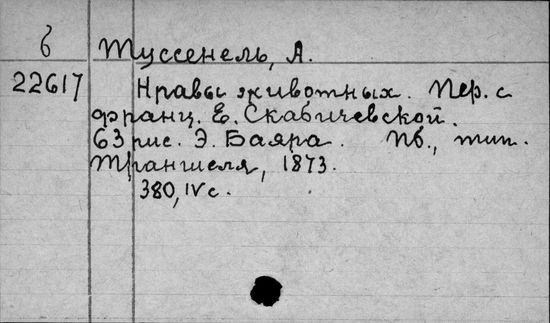 б Туссенель, А.
22617 Нравы животных. Пер. с
франц. Е. Скабичевской.
63 рис. Э. Баяра. Пб., тип.
Траншеля, 1873.
380, IV с.